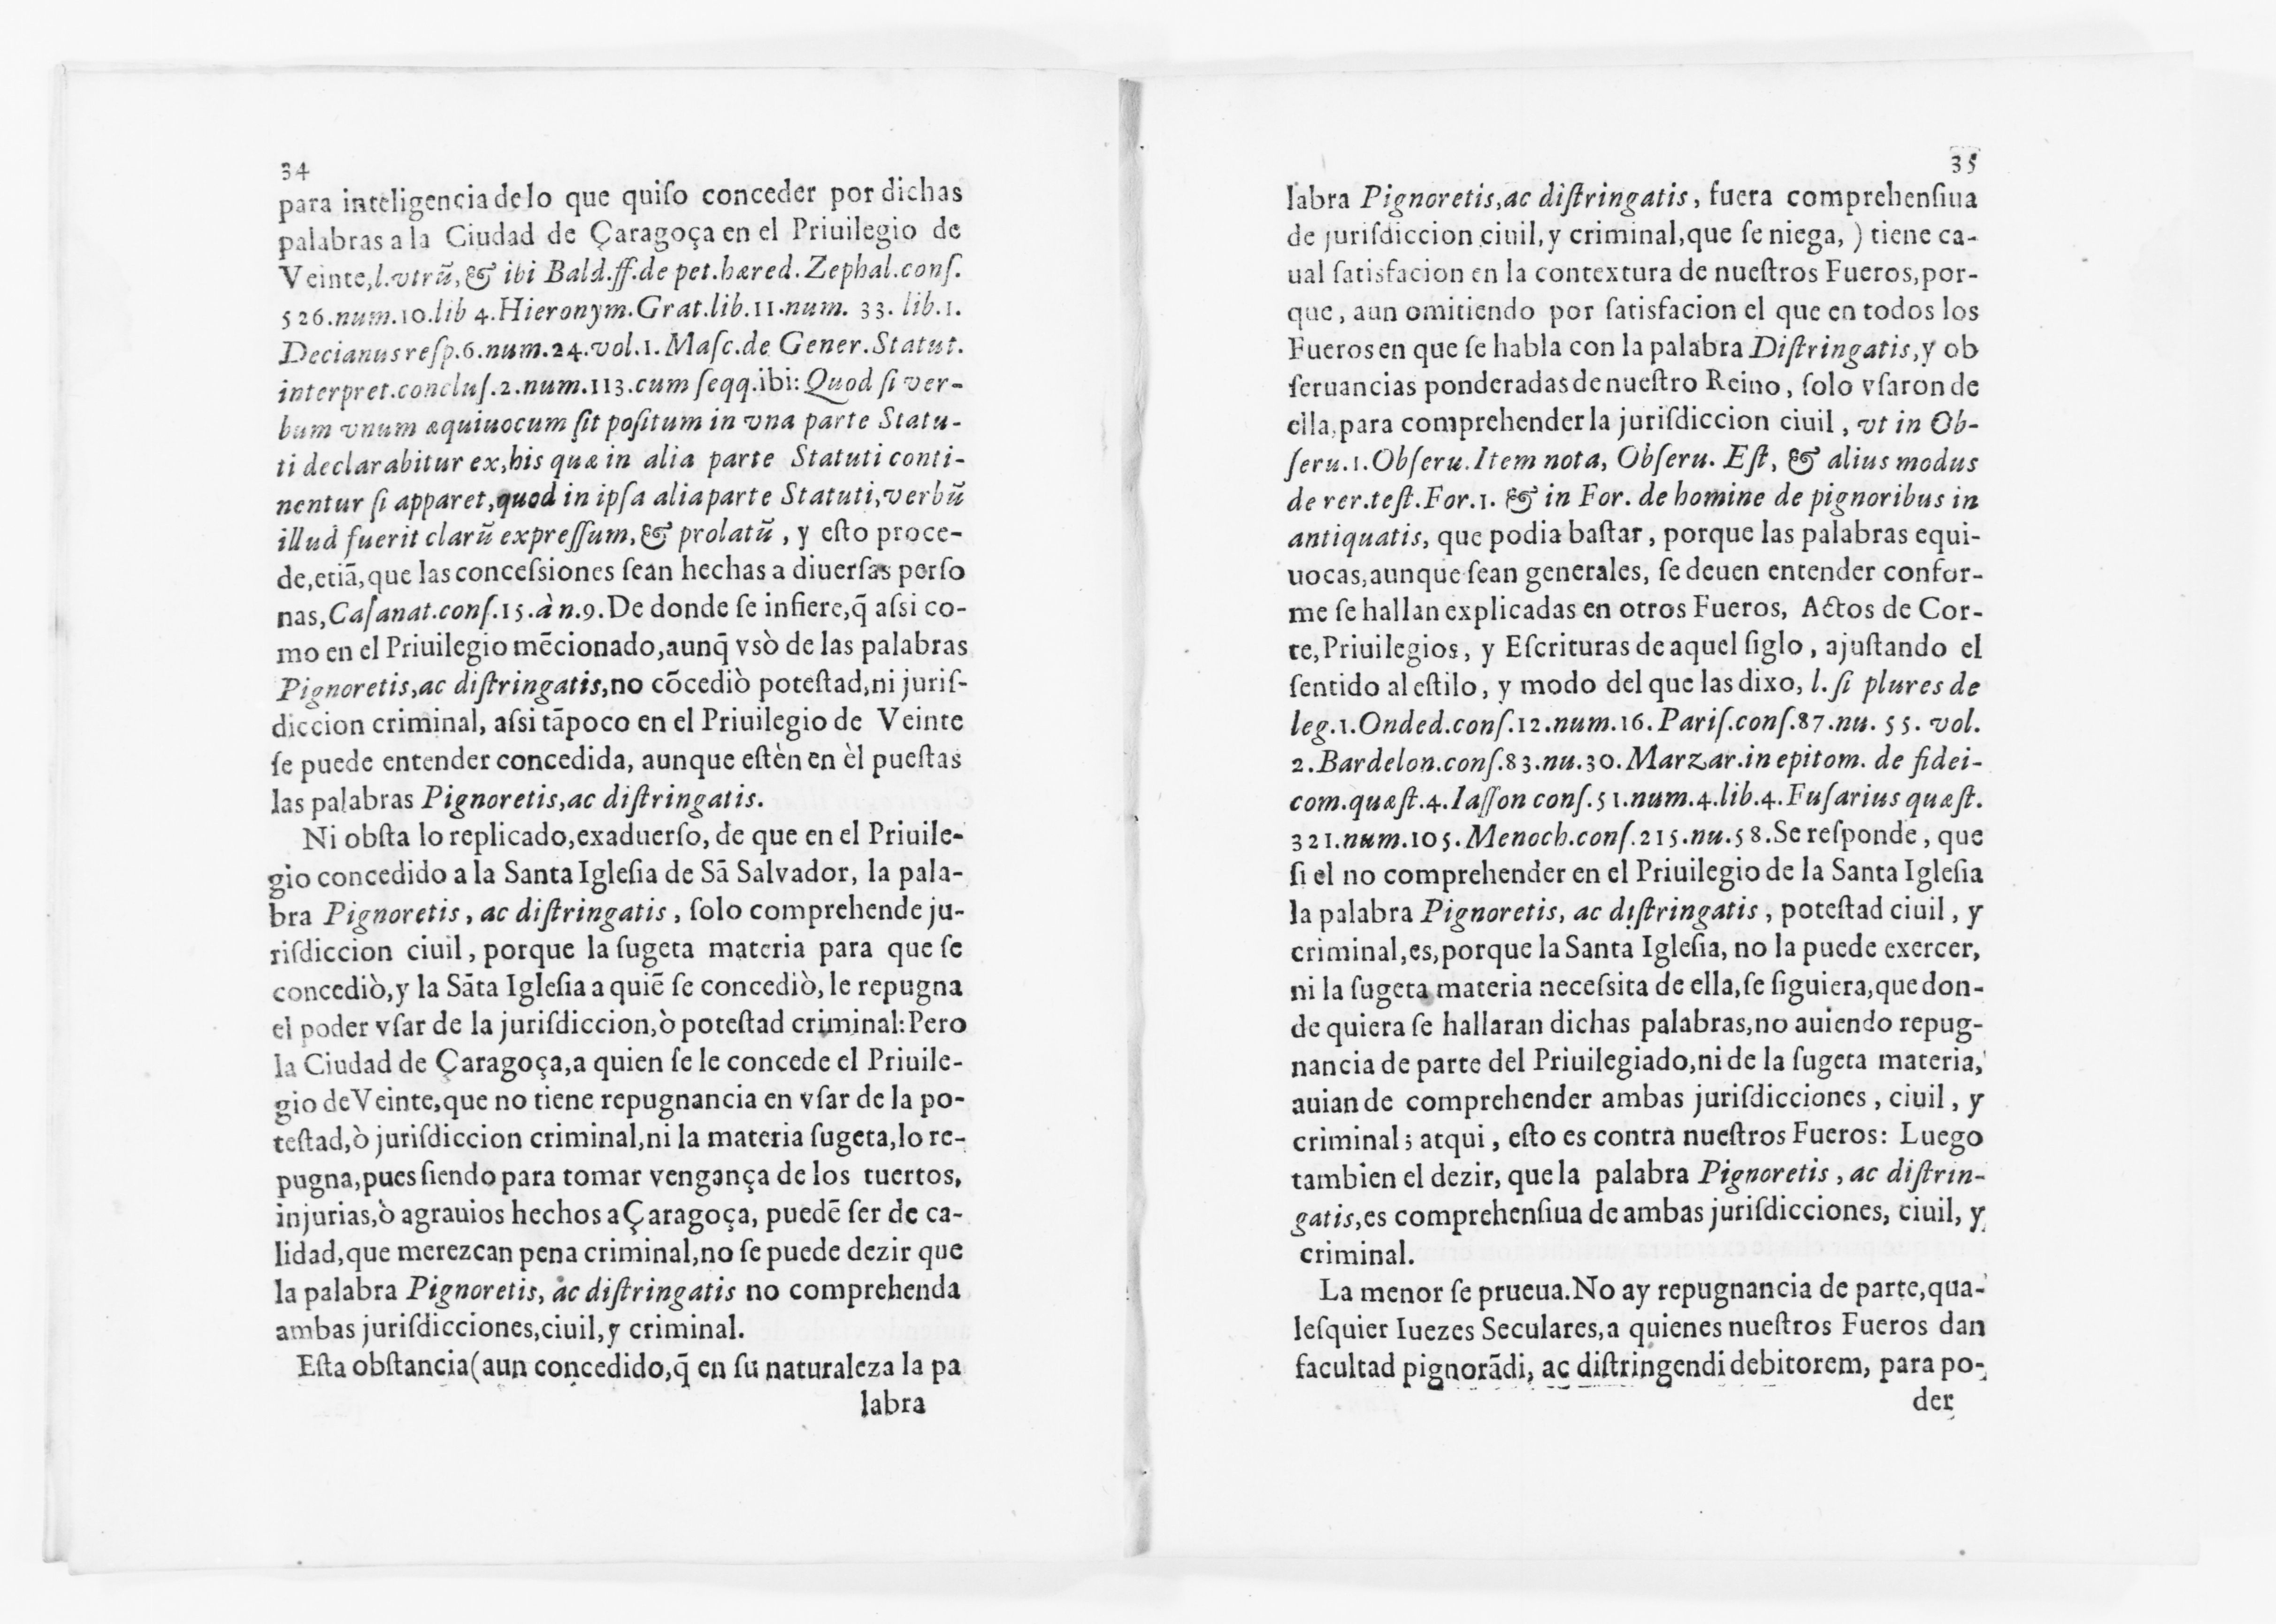 34
para inteligencia de lo que quiſo conceder por dichas
palabras a la Ciudad de Çaragoça en el Priuilegio de
Veinte, l. vtrũ, & ibi Bald. ff. de pet. hæred. Zephal. conſ.
526. num. 10. lib 4. Hieronym. Grat. lib. 11. num. 33. lib. 1.
Decianus reſp. 6. num. 24. vol. 1. Maſc. de Gener. Statut.
interpret. concluſ. 2. num. 113. cum ſeqq. ibi: Quod ſi ver-
bum vnum æquiuocum ſit poſitum in vna parte Statu-
ti declarabitur ex, his quæ in alia parte Statuti conti-
nentur ſi apparet, quod in ipſa alia parte Statuti, verbũ
illud fuerit clarũ expreſſum, & prolatũ, y eſto proce-
de, etiã, que las conceſsiones ſean hechas a diuerſas perſo
nas, Caſanat. conſ. 15. à n. 9. De donde ſe infiere, q̃ aſsi co-
mo en el Priuilegio mẽcionado, aunq̃ vsò de las palabras
Pignoretis, ac diſtringatis, no cõcediò poteſtad, ni juriſ-
diccion criminal, aſsi tãpoco en el Priuilegio de Veinte
ſe puede entender concedida, aunque eſtèn en èl pueſtas
las palabras Pignoretis, ac diſtringatis.
Ni obſta lo replicado, exaduerſo, de que en el Priuile-
gio concedido a la Santa Igleſia de Sã Salvador, la pala-
bra Pignoretis, ac diſtringatis, ſolo comprehende ju-
riſdiccion ciuil, porque la ſugeta materia para que ſe
concediò, y la Sãta Igleſia a quiẽ ſe concediò, le repugna
el poder vſar de la juriſdiccion, ò poteſtad criminal: Pero
la Ciudad de Çaragoça, a quien ſe le concede el Priuile-
gio de Veinte, que no tiene repugnancia en vſar de la po-
teſtad, ò juriſdiccion criminal, ni la materia ſugeta, lo re-
pugna, pues ſiendo para tomar vengança de los tuertos,
injurias, ò agrauios hechos a Çaragoça, puedẽ ſer de ca-
lidad, que merezcan pena criminal, no ſe puede dezir que
la palabra Pignoretis, ac diſtringatis no comprehenda
ambas juriſdicciones, ciuil, y criminal.
Eſta obſtancia (aun concedido, q̃ en ſu naturaleza la pa
labra
35
labra Pignoretis, ac diſtringatis, fuera comprehenſiua
de juriſdiccion ciuil, y criminal, que ſe niega, ) tiene ca-
ual ſatisfacion en la contextura de nueſtros Fueros, por-
que, aun omitiendo por ſatisfacion el que en todos los
Fueros en que ſe habla con la palabra Diſtringatis, y ob
ſeruancias ponderadas de nueſtro Reino, ſolo vſaron de
ella, para comprehender la juriſdiccion ciuil, vt in Ob-
ſeru. 1. Obſeru. Item nota, Obſeru. Eſt, & alius modus
de rer. teſt. For. 1. & in For. de homine de pignoribus in
antiquatis, que podia baſtar, porque las palabras equi-
uocas, aunque ſean generales, ſe deuen entender confor-
me ſe hallan explicadas en otros Fueros, Actos de Cor-
te, Priuilegios, y Eſcrituras de aquel ſiglo, ajuſtando el
ſentido al eſtilo, y modo del que las dixo, l. ſi plures de
leg. 1. Onded. conſ. 12. num. 16. Pariſ. conſ. 87. nu. 55. vol.
2. Bardelon. conſ. 83. nu. 30. Marzar. in epitom. de fidei-
com. quæſt. 4. Iaſſon conſ. 51. num. 4. lib. 4. Fuſarius quæſt.
321. num. 105. Menoch. conſ. 215. nu. 58. Se reſponde, que
ſi el no comprehender en el Priuilegio de la Santa Igleſia
la palabra Pignoretis, ac diſtringatis, poteſtad ciuil, y
criminal, es, porque la Santa Igleſia, no la puede exercer,
ni la ſugeta materia neceſsita de ella, ſe ſiguiera, que don-
de quiera ſe hallaran dichas palabras, no auiendo repug-
nancia de parte del Priuilegiado, ni de la ſugeta materia,
auian de comprehender ambas juriſdicciones, ciuil, y
criminal; atqui, eſto es contra nueſtros Fueros: Luego
tambien el dezir, que la palabra Pignoretis, ac diſtrin-
gatis, es comprehenſiua de ambas juriſdicciones, ciuil, y
criminal.
La menor ſe prueua. No ay repugnancia de parte, qua-
leſquier Iuezes Seculares, a quienes nueſtros Fueros dan
facultad pignorãdi, ac diſtringendi debitorem, para po-
der